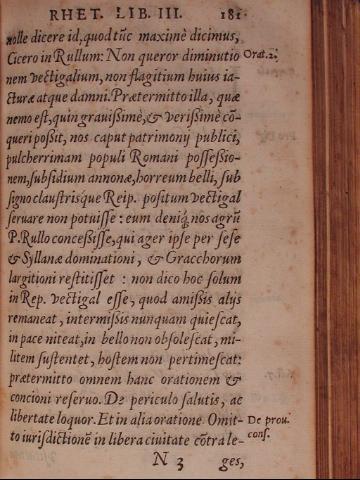 RHET. LIB. III. 181
nolle dicere id, quod tūc maximè dicimus,
Cicero in Rullum: Non queror diminutio Orat. 2.
nem vectigalium, non flagitium huius ia-
cturæ atque damni. Prætermitto illa, quæ
nemo est, quin grauissimè, & verissimè cō-
queri possit, nos caput patrimonij publici,
pulcherrimam populi Romani possessio-
nem, subsidium annonæ, horreum belli, sub
signo claustrisque Reip. positum vectigal
seruare non potuisse: eum deniq; nos agrū
P. Rullo concessisse, qui ager ipse per sese
& Syllanæ dominationi, & Gracchorum
largitioni restitisset: non dico hoc solum
in Rep. vectigal esse, quod amissis alijs
remaneat, intermissis nunquam quiescat,
in pace niteat, in bello non obsolescat, mi-
litem sustentet, hostem non pertimescat:
prætermitto omnem hanc orationem &
concioni reseruo. De periculo salutis, ac
libertate loquor. Et in alia oratione Omit- De prou.
to iurisdictionē in libera ciuitate cōtra le- cons.
N 3 ges,